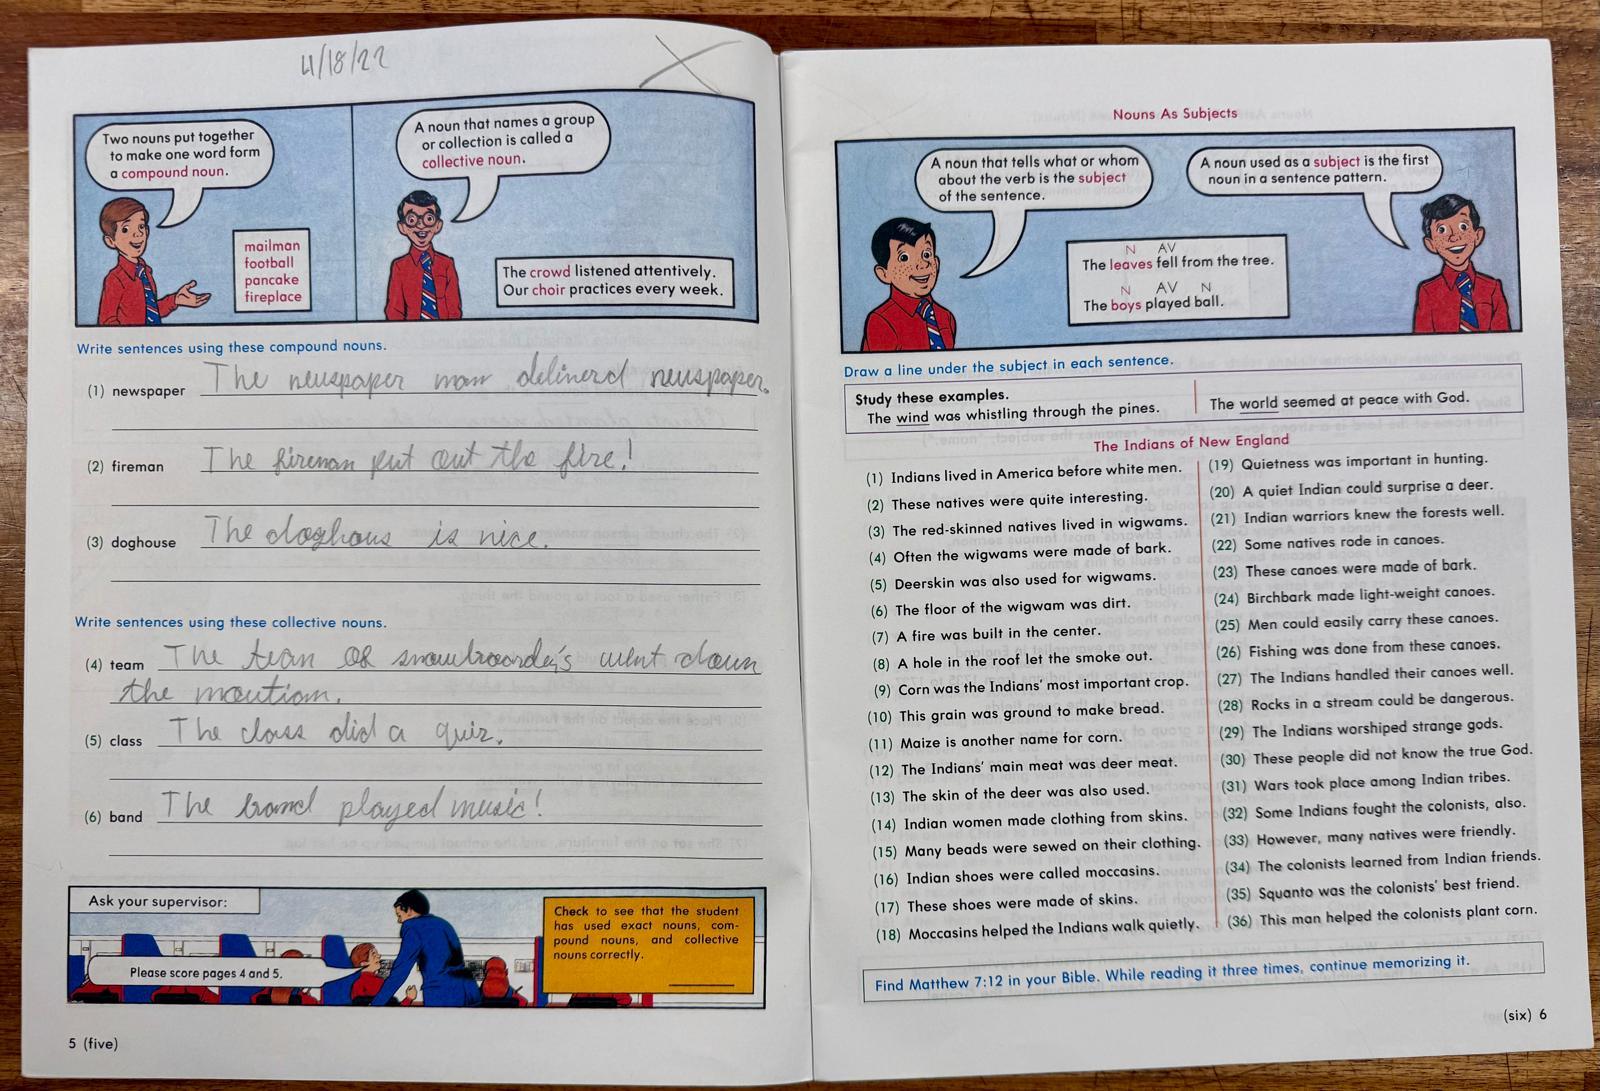 4/18/22
Two nouns put together
to make one word form
a compound noun.
mailman
football
pancake
fireplace
A noun that names a group
or collection is called a
collective noun.
The crowd listened attentively.
Our choir practices every week.
Write sentences using these compound nouns.
(1) newspaper The newspaper man delinerd newspaper.
(2) fireman The fireman put out the fire!
(3) doghouse The doghous is nice.
Write sentences using these collective nouns.
(4) team The team of snowboarder's went down
the moutian.
(5) class The class did a quiz.
(6) band The band played music!
Ask your supervisor:
Please score pages 4 and 5.
Check to see that the student
has used exact nouns, com-
pound nouns, and collective
nouns correctly.
5 (five)
Nouns As Subjects
A noun that tells what or whom
about the verb is the subject
of the sentence.
A noun used as a subject is the first
noun in a sentence pattern.
N AV
The leaves fell from the tree.
N AV N
The boys played ball.
Draw a line under the subject in each sentence.
Study these examples.
The wind was whistling through the pines.
The world seemed at peace with God.
The Indians of New England
(1) Indians lived in America before white men.
(2) These natives were quite interesting.
(3) The red-skinned natives lived in wigwams.
(4) Often the wigwams were made of bark.
(5) Deerskin was also used for wigwams.
(6) The floor of the wigwam was dirt.
(7) A fire was built in the center.
(8) A hole in the roof let the smoke out.
(9) Corn was the Indians' most important crop.
(10) This grain was ground to make bread.
(11) Maize is another name for corn.
(12) The Indians' main meat was deer meat.
(13) The skin of the deer was also used.
(14) Indian women made clothing from skins.
(15) Many beads were sewed on their clothing.
(16) Indian shoes were called moccasins.
(17) These shoes were made of skins.
(18) Moccasins helped the Indians walk quietly.
(19) Quietness was important in hunting.
(20) A quiet Indian could surprise a deer.
(21) Indian warriors knew the forests well.
(22) Some natives rode in canoes.
(23) These canoes were made of bark.
(24) Birchbark made light-weight canoes.
(25) Men could easily carry these canoes.
(26) Fishing was done from these canoes.
(27) The Indians handled their canoes well.
(28) Rocks in a stream could be dangerous.
(29) The Indians worshiped strange gods.
(30) These people did not know the true God.
(31) Wars took place among Indian tribes.
(32) Some Indians fought the colonists, also.
(33) However, many natives were friendly.
(34) The colonists learned from Indian friends.
(35) Squanto was the colonists' best friend.
(36) This man helped the colonists plant corn.
Find Matthew 7:12 in your Bible. While reading it three times, continue memorizing it.
(six) 6